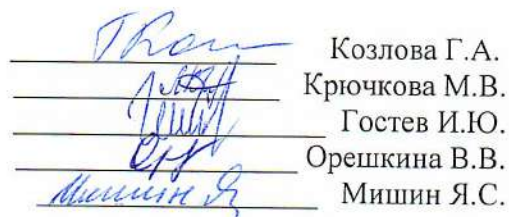 Козлова Г.А.
Крючкова М.В.
Гостев И.Ю.
Орешкина В.В.
Мишин Я Мишин Я.С.